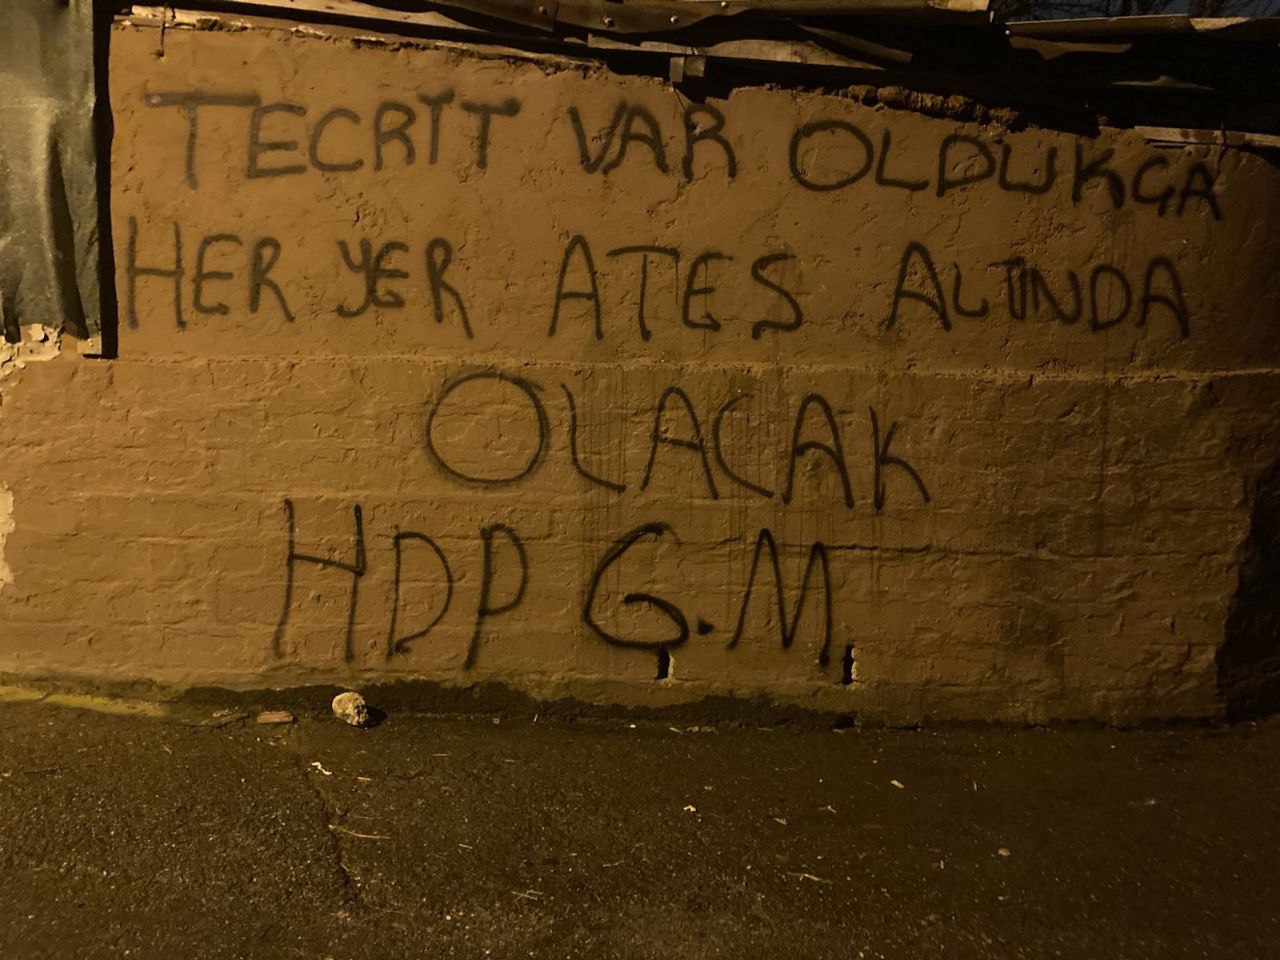 TECRİT VAR OLDUKGA
HER YER ATES ALTINDA
OLACAK
HDP G.M.